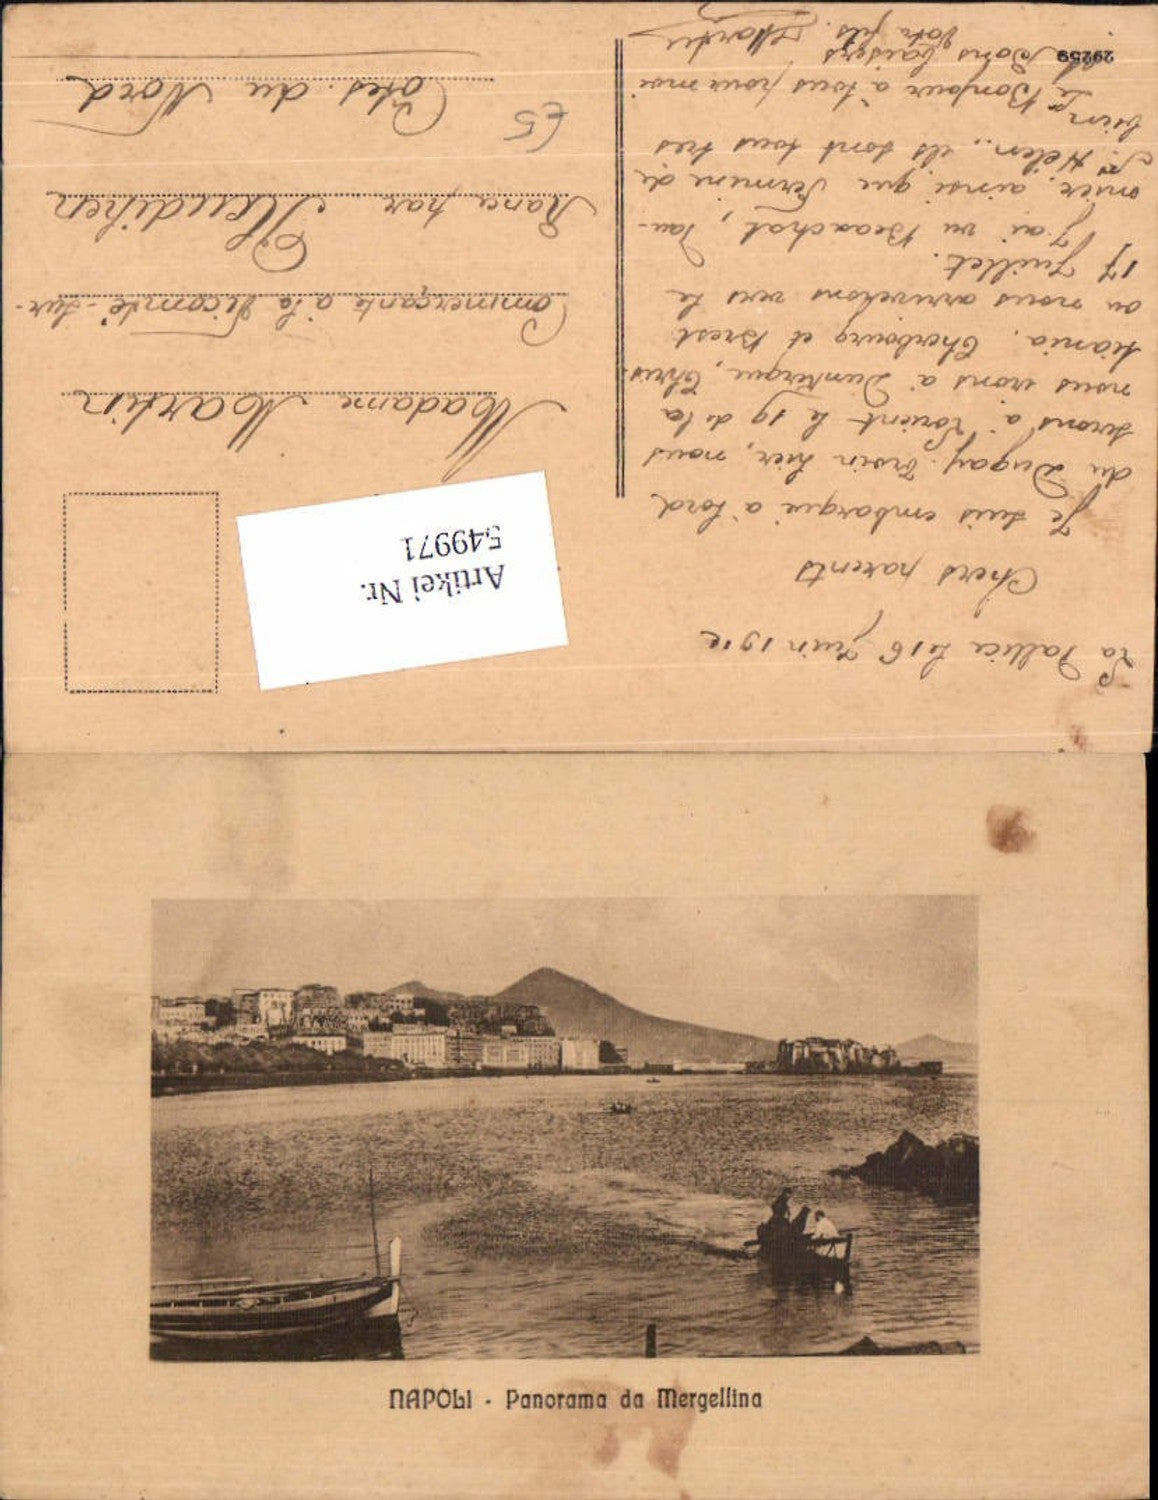 La Pallice le 16 Juin 1912
Chers parents
Je suis embarqué à bord
du Dugay-Trouin hier, nous
serons à Lorient le 19 de là
nous irons à Dunkerque, Chris-
tiania, Cherbourg et Brest
ou nous arriverons vers le
17 Juillet.
J'ai vu Beauchat, Dau-
nier, ainsi que Fermine de
St Hélen, ils sont tous très
bien
Le Bonjour à tous pour moi
Bons baisers
Votre fils. Martin
29259
Artikel Nr.
549971
Madame Martin
Commerçante à la Vicomté-sur-
Rance par Pleudihen
Côtes du Nord
E5
NAPOLI - Panorama da Mergellina